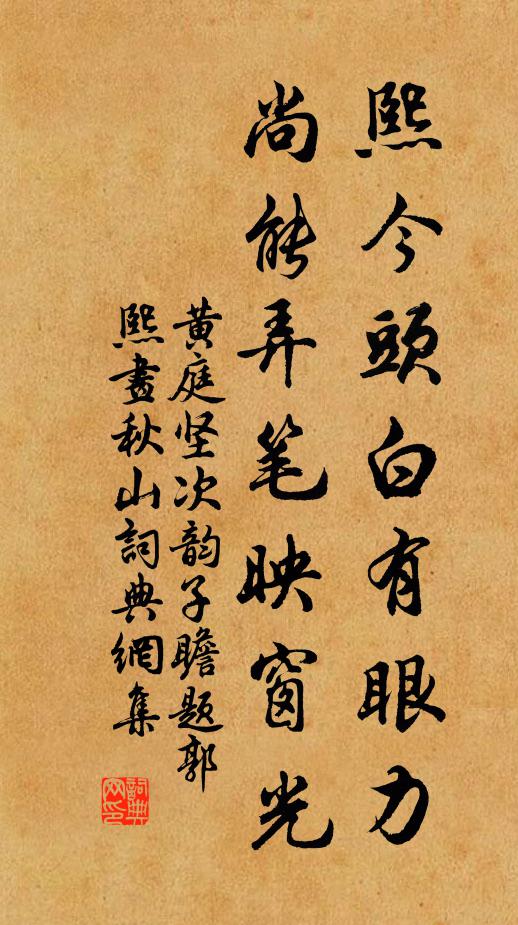 熙今頭白有眼力
尚能弄笔映窗光
黄庭坚次韵子瞻题郭
熙畫秋山詞典網集
詞典
网印